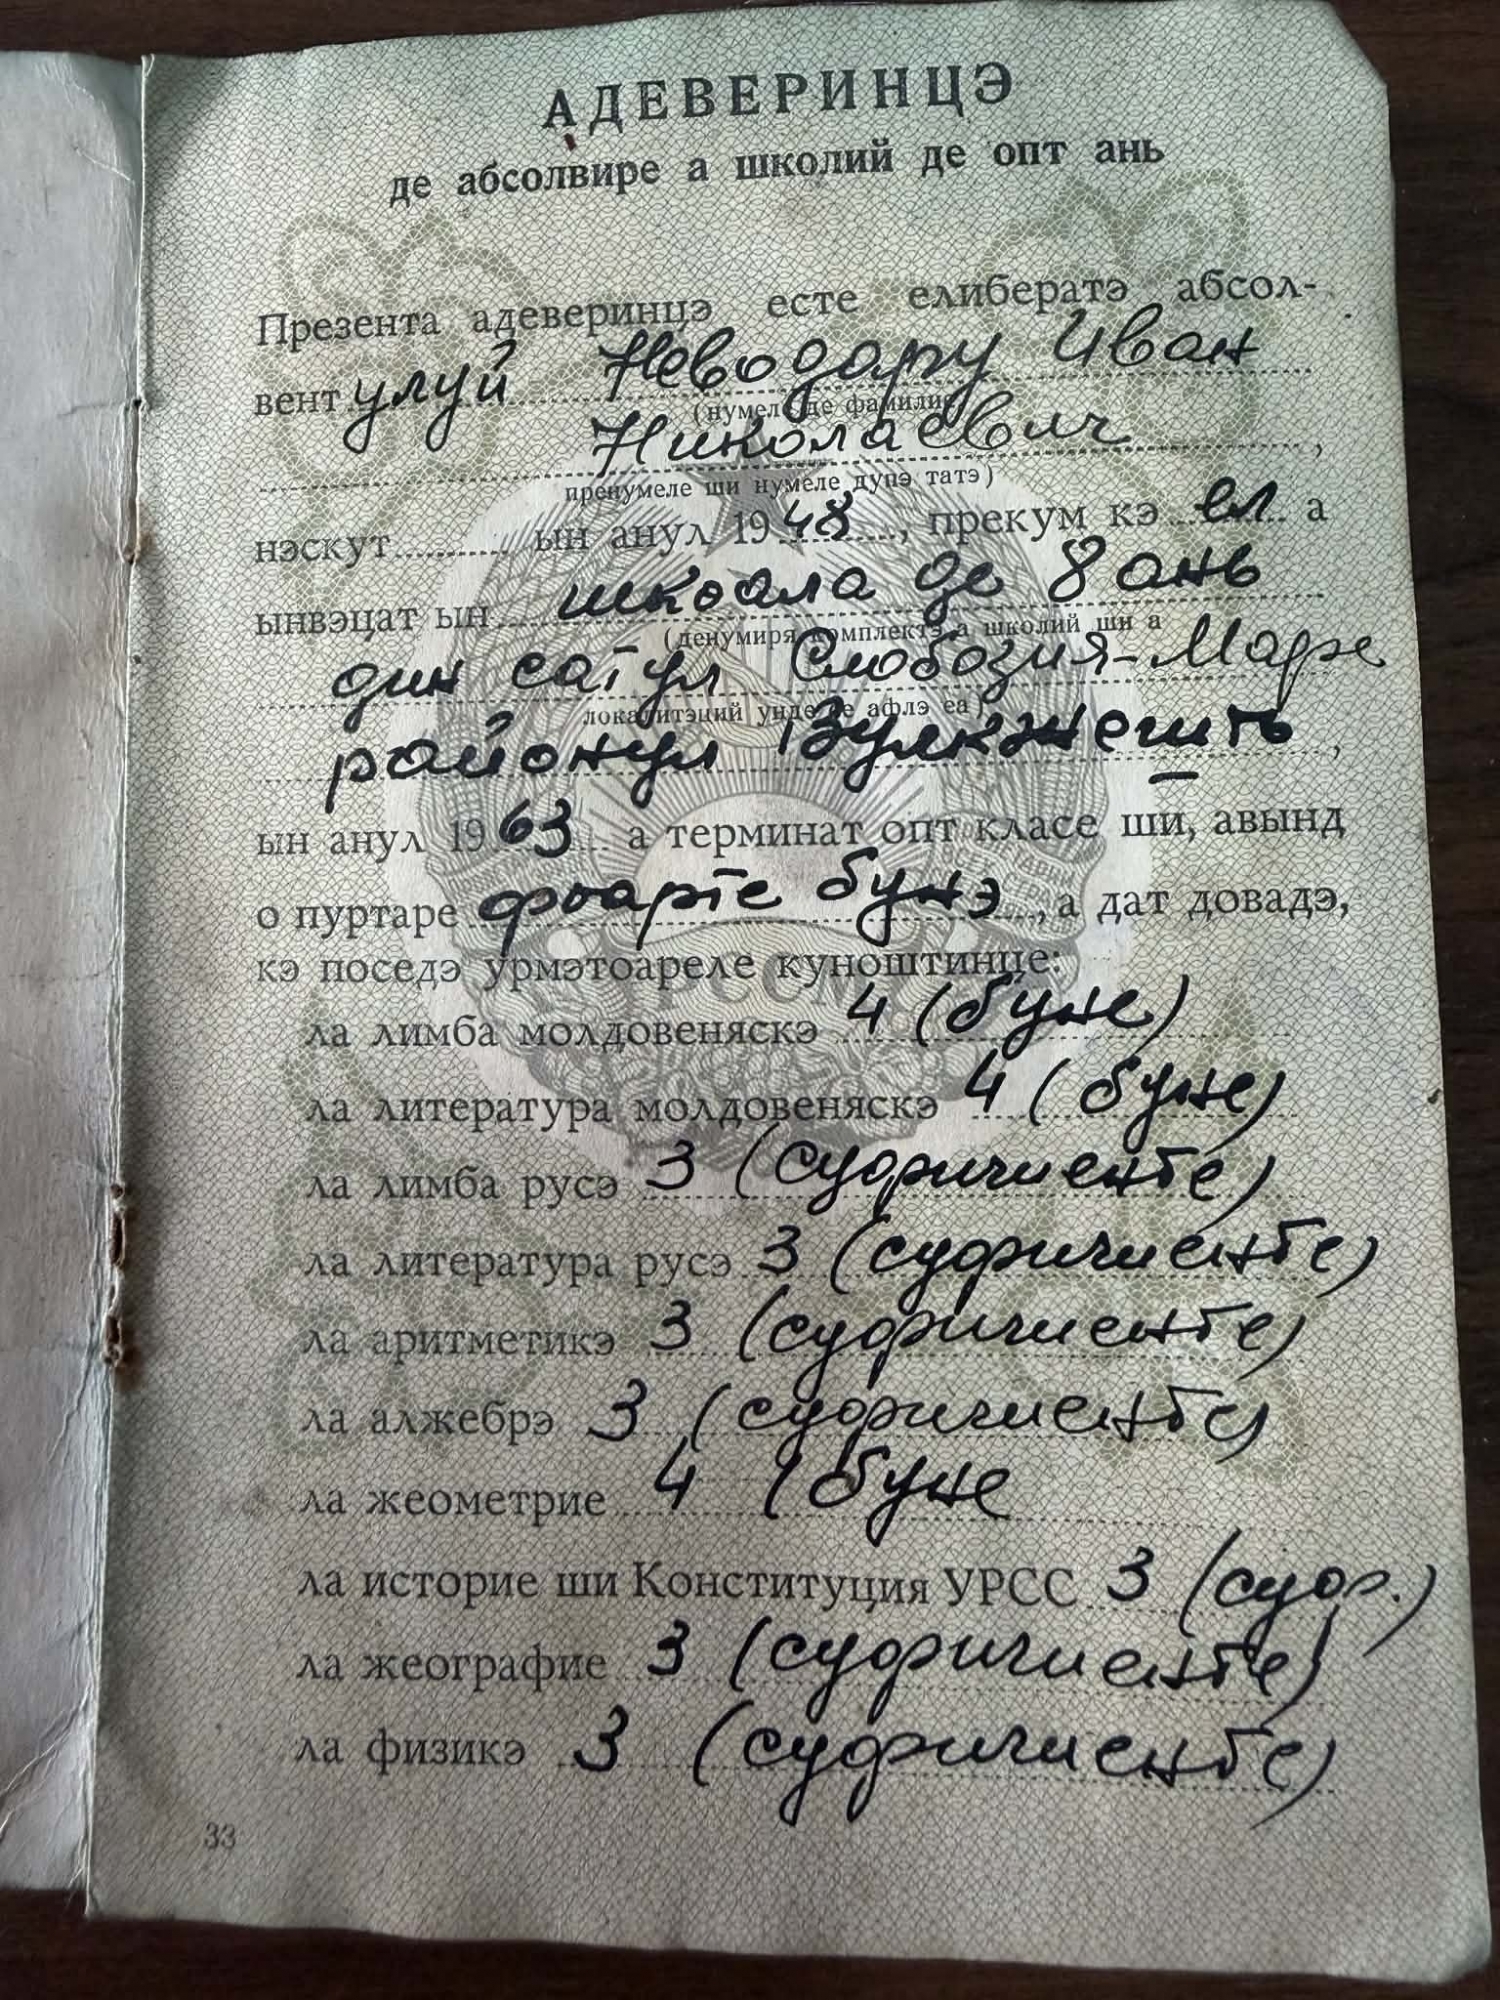 АДЕВЕРИНЦЭ
де абсолвире а школий де опт ань
Презента адеверинцэ есте елибератэ абсол-
вент улуй Неводару Иван
(нумеле де фамилие
Николаевич,
пренумеле ши нумеле дупэ татэ)
нэскут ын анул 1948, прекум кэ ел а
ынвэцат ын школа де 8 ань
(денумиря комплектэ а школий ши а
дин сатул Слобозия-Маре
локалитэций унде се афлэ еа)
районул Вулкэнешть,
ын анул 1963 а терминат опт класе ши, авынд
о пуртаре фоарте бунэ, а дат довадэ,
кэ поседэ урмэтоареле куноштинце:
ла лимба молдовеняскэ 4 (буне)
ла литература молдовеняскэ 4 (буне)
ла лимба русэ 3 (суфичиенте)
ла литература русэ 3 (суфичиенте)
ла аритметикэ 3 (суфичиенте)
ла алжебрэ 3 (суфичиенте)
ла жеометрие 4 (буне
ла историе ши Конституция УРСС 3 (суф.)
ла жеографие 3 (суфичиенте)
ла физикэ 3 (суфичиенте)
33